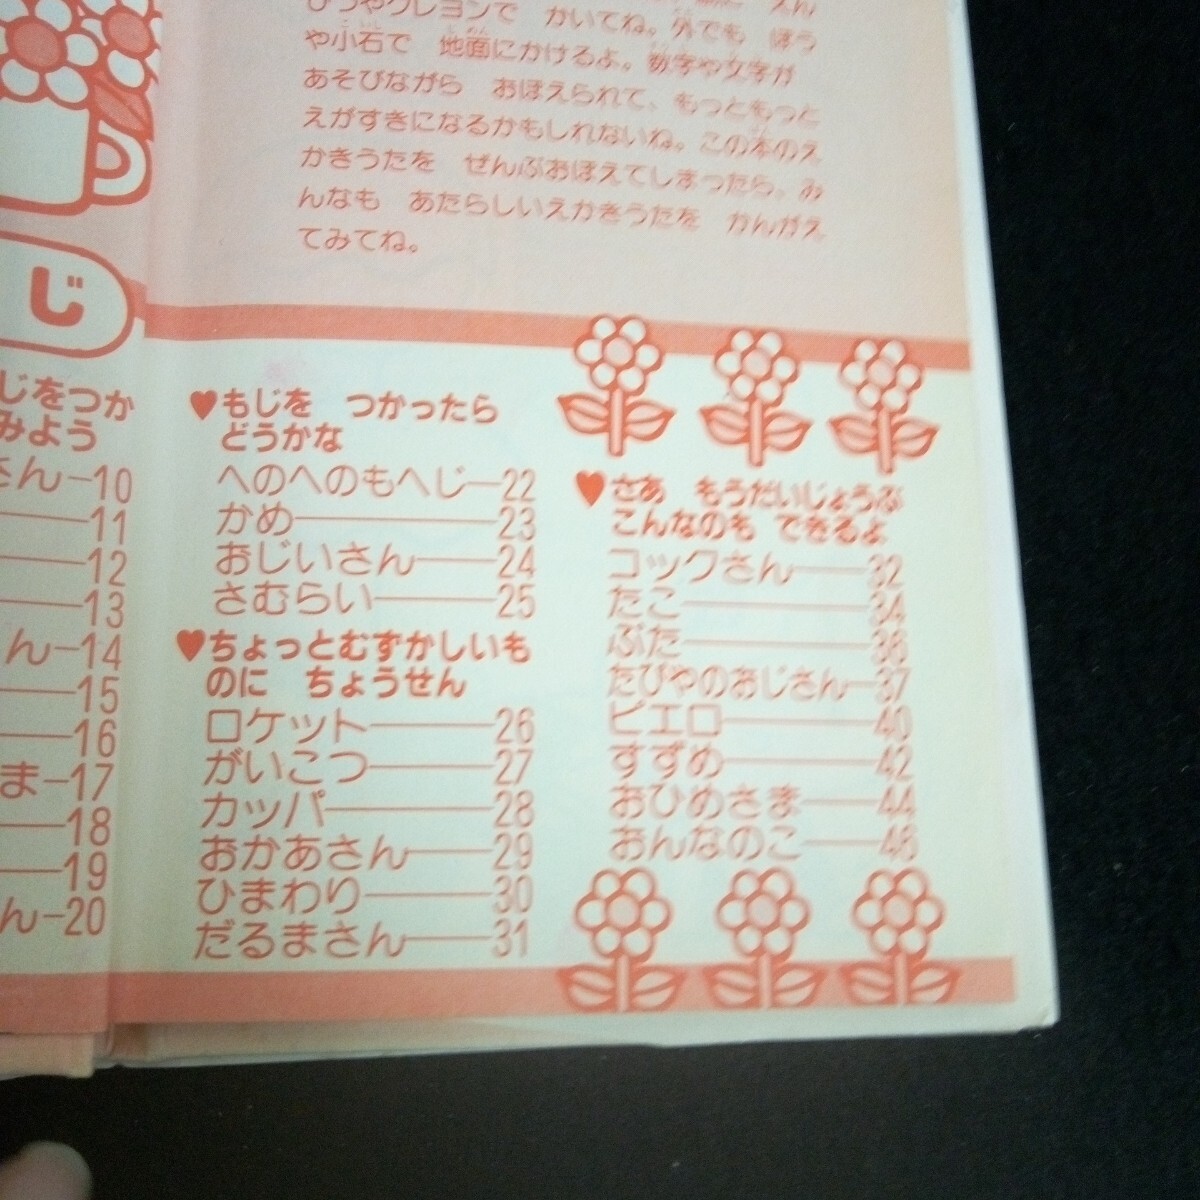 ぴつやクレヨンで かいてね。外でも ぼう
や小石で 地面にかけるよ。数字や文字が
あそびながら おぼえられて、もっともっと
えがすきになるかもしれないね。この本のえ
かきうたを ぜんぶおぼえてしまったら、み
んなも あたらしいえかきうたを かんがえ
てみてね。
じ
じをつか
みよう
さん―10
11
12
13
ん―14
15
16
ま―17
18
19
ん―20
♥もじを つかったら
どうかな
へのへのもへじ―22
かめ―23
おじいさん―24
さむらい―25
♥ちょっとむずかしいも
のに ちょうせん
ロケット―26
がいこつ―27
カッパ―28
おかあさん―29
ひまわり―30
だるまさん―31
♥さあ もうだいじょうぶ
こんなのも できるよ
コックさん―32
たこ―34
ぶた―36
たびやのおじさん―37
ピエロ―40
すずめ―42
おひめさま―44
おんなのこ―46